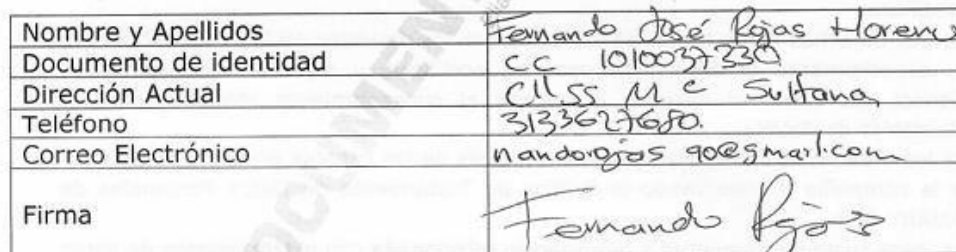 Nombre y Apellidos Fernando José Rojas
Documento de identidad CC 1010037330
Dirección Actual Sultana
Teléfono 3133627680.
Correo Electrónico nandorojas90@gmail.com
Firma Fernando Rojas
DOCUMEN